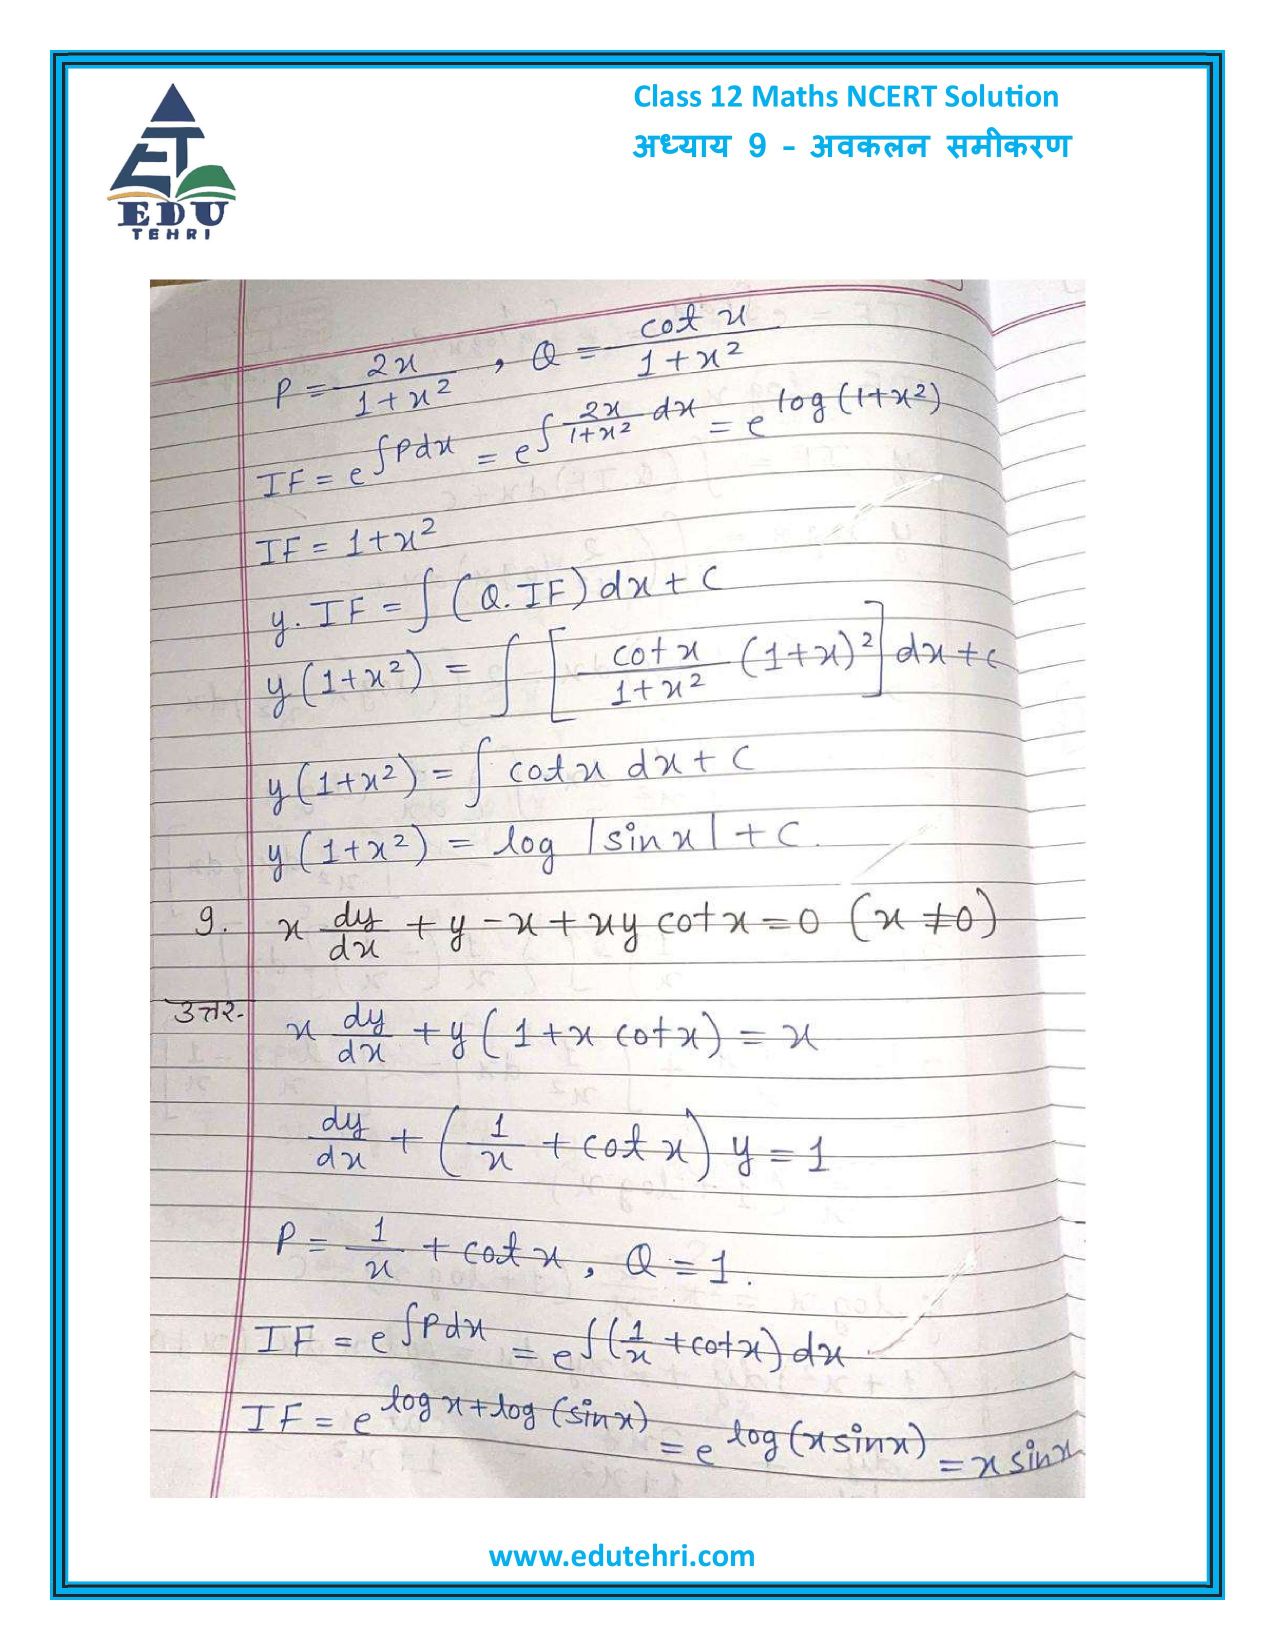 Class 12 Maths NCERT Solution
अध्याय 9 – अवकलन समीकरण
EDU
TEHRI
P = 2x/(1+x²) , Q = cot x/(1+x²)
IF = e^∫Pdx = e^∫ 2x/(1+x²) dx = e^log(1+x²)
IF = 1+x²
y. IF = ∫(Q.IF)dx + C
y(1+x²) = ∫[cot x/(1+x²) (1+x)²]dx + c
y(1+x²) = ∫ cot x dx + C
y(1+x²) = log |sin x| + C.
9. x dy/dx + y - x + xy cot x = 0 (x ≠ 0)
उत्तर- x dy/dx + y(1 + x cot x) = x
dy/dx + (1/x + cot x) y = 1
P = 1/x + cot x , Q = 1.
IF = e^∫Pdx = e^∫(1/x + cot x) dx
IF = e^log x + log (sin x) = e^log(x sin x) = x sin x
www.edutehri.com